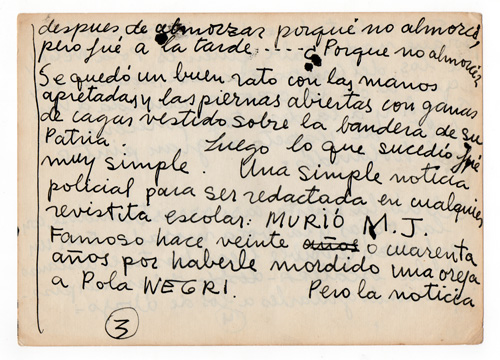 despues de almorzar porqué no almorcé,
pero fué a la tarde..... ¿Porque no almorcía
Se quedó un buen rato con las manos
apretadas y las piernas abiertas con ganas
de cagar vestido sobre la bandera de su
Patria. Luego lo que sucedió fué
muy simple. Una simple noticia
policial para ser redactada en cualquier
revistita escolar: MURIÓ M.J.
Famoso hace veinte años o cuarenta
años por haberle mordido una oreja
a Pola NEGRI. Pero la noticia
3